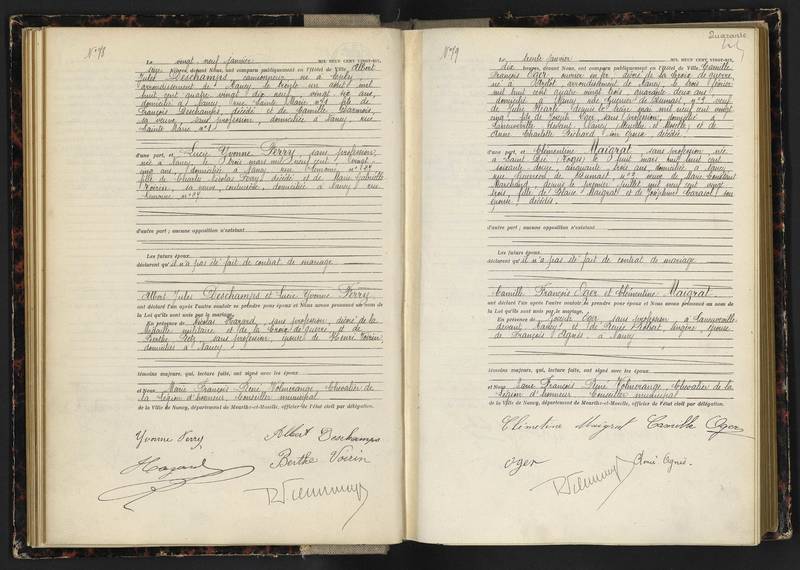 N° 78
Le vingt neuf janvier MIL NEUF CENT VINGT-SIX,
heures, devant Nous, ont comparu publiquement en l'Hôtel de Ville, Albert
Jules Deschamps, né à
arrondissement de Nancy le trente un août mil
huit cent quatre vingt dix neuf, vingt six ans,
domicilié à Nancy rue Sainte Marie n° 1 fils de
François Deschamps, décédé et de Camille
sa veuve, sans profession, domiciliée à Nancy, rue
Sainte Marie n° 1
d'une part, et Lucie Yvonne Ferry, sans profession,
née à Nancy le trois mars mil neuf cent, vingt-
cinq ans, domiciliée à Nancy rue
fille de Charles Nicolas Ferry décédé et de Marie
Voirin, sa veuve, couturière, domiciliée à Nancy rue
d'autre part; aucune opposition n'existant
Les futurs époux
déclarent qu'il n'a pas été fait de contrat de mariage
Albert Jules Deschamps et Lucie Yvonne Ferry
ont déclaré l'un après l'autre vouloir se prendre pour époux et Nous avons prononcé au nom de
la Loi qu'ils sont unis par le mariage,
En présence de Nicolas Hazard, sans profession, décoré de la
Médaille militaire et de la Croix de guerre et de
Berthe sans profession, épouse de Voirin,
domiciliés à Nancy
témoins majeurs, qui, lecture faite, ont signé avec les époux
et Nous, Marie François René Volmerange, Chevalier de
la Légion d'honneur Conseiller municipal
de la Ville de Nancy, département de Meurthe-et-Moselle, officier de l'état civil par délégation.
Yvonne Ferry Albert Deschamps
Hazard Berthe Voirin
Quarante
N° 79
Le trente janvier MIL NEUF CENT VINGT-SIX,
dix heures, devant Nous, ont comparu publiquement en l'Hôtel de Ville, Camille
François Oger, ouvrier en fer, décoré de la Croix de guerre,
né à arrondissement de Nancy, le trois février
mil huit cent quatre vingt trois, quarante deux ans,
domicilié à Nancy, rue n° 9 veuf
de depuis le seize mai mil neuf cent vingt
fils de Joseph Oger, sans profession, domicilié à
Laneuveville devant Nancy (Meurthe et Moselle), et de
Anne Charlotte son épouse décédée
d'une part, et Clémentine Maigrat, sans profession, née
à Saint Dié (Vosges) le huit mars mil huit cent
soixante douze, cinquante trois ans, domiciliée à Nancy,
rue n° 9, veuve de Marie
Marchand, depuis le premier juillet mil neuf cent vingt
trois, fille de Blaise Maigrat et de Joséphine son
épouse, décédés.
d'autre part; aucune opposition n'existant
Les futurs époux
déclarent qu'il n'a pas été fait de contrat de mariage
Camille François Oger et Clémentine Maigrat
ont déclaré l'un après l'autre vouloir se prendre pour époux et Nous avons prononcé au nom de
la Loi qu'ils sont unis par le mariage,
En présence de Joseph Oger, sans profession, à Laneuveville
devant Nancy et de Renée lingère épouse
de François Agnès, à Nancy
témoins majeurs, qui, lecture faite, ont signé avec les époux
et Nous, Marie François René Volmerange, Chevalier de la
Légion d'honneur Conseiller municipal
de la Ville de Nancy, département de Meurthe-et-Moselle, officier de l'état civil par délégation.
Clémentine Maigrat Camille Oger
Oger Agnès.